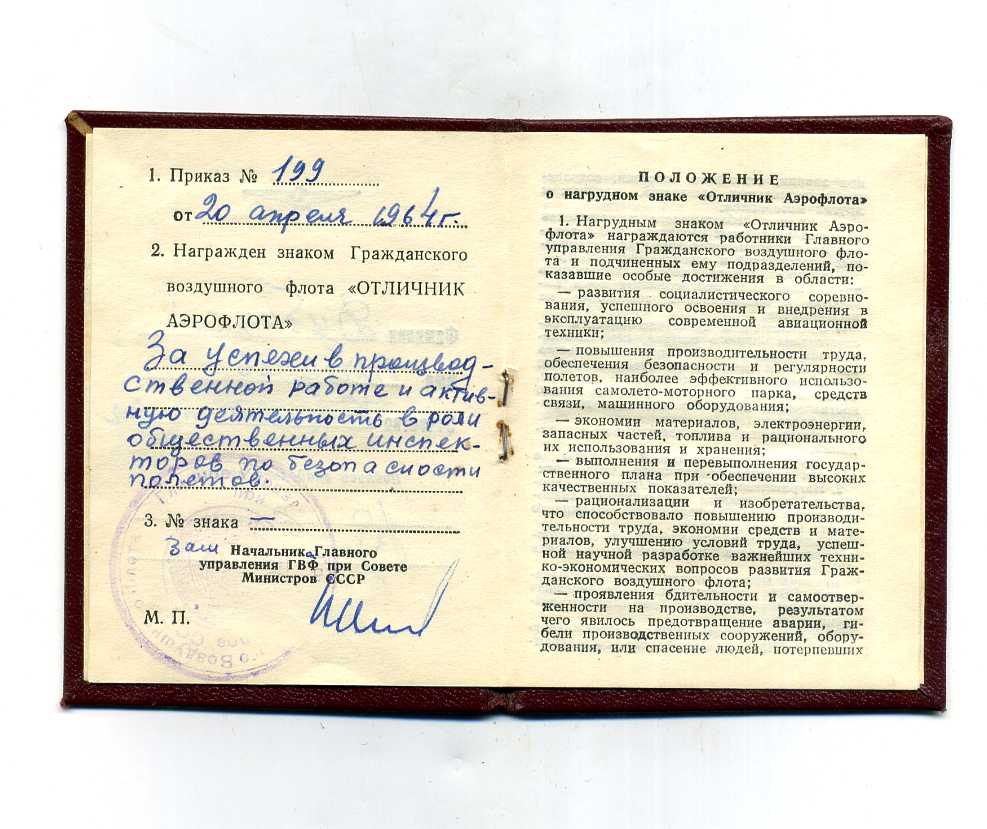 1. Приказ № 199
от 20 апреля 1964 г.
2. Награжден знаком Гражданского
воздушного флота «ОТЛИЧНИК
АЭРОФЛОТА»
За успехи в производ-
ственной работе и актив-
ную деятельность в роли
общественных инспек-
торов по безопасности
полетов.
3. № знака —
Зам Начальник Главного
управления ГВФ при Совете
Министров СССР
М. П.
ПОЛОЖЕНИЕ
о нагрудном знаке «Отличник Аэрофлота»
1. Нагрудным знаком «Отличник Аэро-
флота» награждаются работники Главного
управления Гражданского воздушного фло-
та и подчиненных ему подразделений, по-
казавшие особые достижения в области:
— развития социалистического соревно-
вания, успешного освоения и внедрения в
эксплуатацию современной авиационной
техники;
— повышения производительности труда,
обеспечения безопасности и регулярности
полетов, наиболее эффективного использо-
вания самолето-моторного парка, средств
связи, машинного оборудования;
— экономии материалов, электроэнергии,
запасных частей, топлива и рационального
их использования и хранения;
— выполнения и перевыполнения государ-
ственного плана при обеспечении высоких
качественных показателей;
— рационализации и изобретательства,
что способствовало повышению производи-
тельности труда, экономии средств и мате-
риалов, улучшению условий труда, успеш-
ной научной разработке важнейших техни-
ко-экономических вопросов развития Граж-
данского воздушного флота;
— проявления бдительности и самоотвер-
женности на производстве, результатом
чего явилось предотвращение аварии, ги-
бели производственных сооружений, обору-
дования, или спасение людей, потерпевших